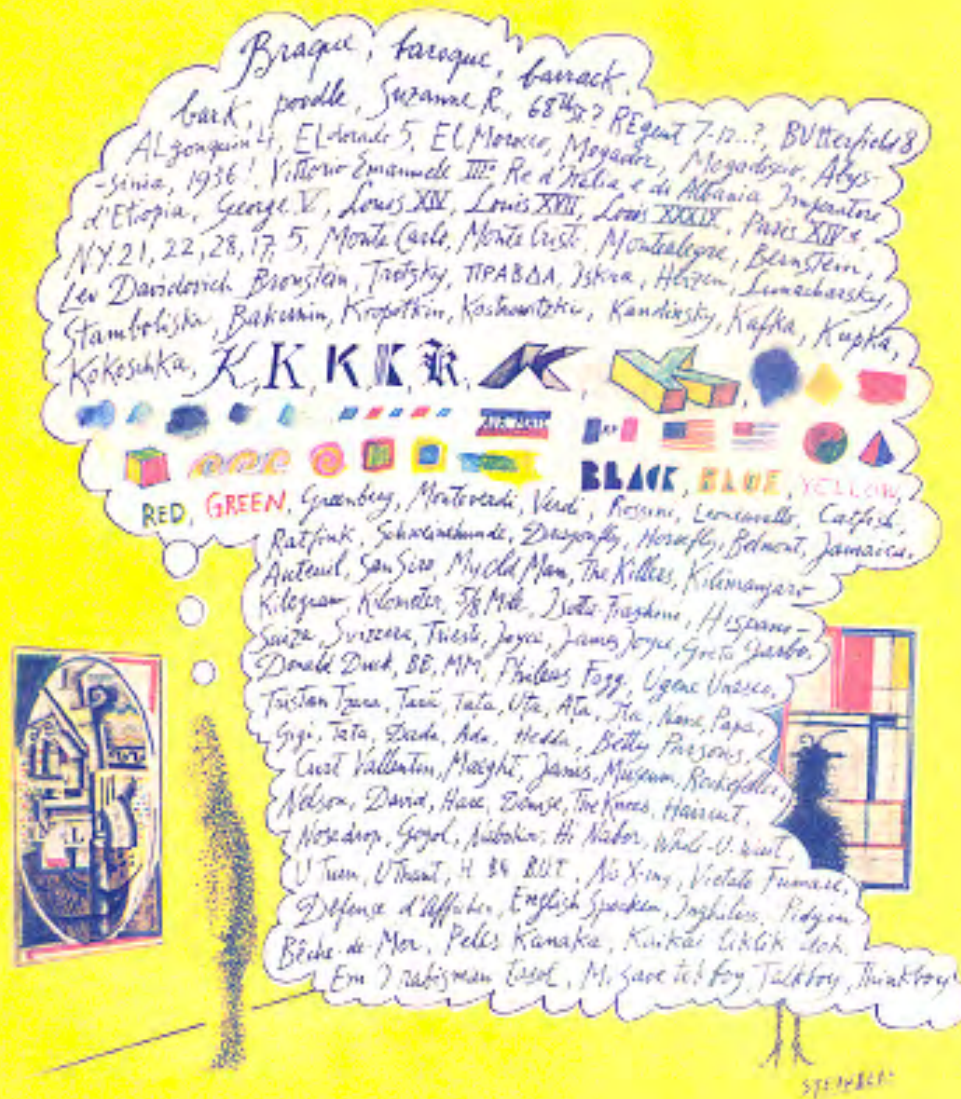 Braque, baroque, barrack,
bark, poodle, Suzanne R., 68th St? REgent 7-12...?, BUtterfield 8
ALgonquin 4, ELdorado 5, EL Morocco, Mogador, Mogadiscio, Abys-
-sinia, 1936! Vittorio Emanuele III° Re d'Italia e di Albania Imperatore
d'Etiopia, George V, Louis XIV, Louis XVII, Louis XXXIX, Paris XIVe
NY. 21, 22, 28, 17, 5, Monte Carlo, Monte Cristo, Montealegre, Bernstein,
Lev Davidovich Bronstein, Trotzky, ПРАВДА, Iskra, Herzen, Lunacharsky,
Stambolisky, Bakunin, Kropotkin, Kostrowitzky, Kandinsky, Kafka, Kupka,
Kokoschka, K, K, K, K, K, K, K,
BLACK, BLUE, YELLOW,
RED, GREEN, Greenberg, Monteverdi, Verdi, Rossini, Leoncavallo, Catfish,
Ratfink, Schweinehunde, Dragonfly, Horsefly, Belmont, Jamaica,
Auteuil, San Siro, My Old Man, The Killers, Kilimanjaro
Kilogram, Kilometer, 5/8 Mile, Isotta-Fraschini, Hispano-
Suiza, Svizzera, Trieste, Joyce, James Joyce, Greta Garbo,
Donald Duck, BB, MM, Phileas Fogg, Ugene Unesco,
Tristan Tzara, Tara, Tata, Uta, Ata, Ita, Nana, Papa,
Gigi, Tata, Dada, Ada, Hedda, Betty Parsons,
Curt Valentin, Maeght, Janis, Museum, Rockefeller,
Nelson, David, Hare, Denise, The Knees, Haircut,
Nosedrop, Gogol, Nabokov, Hi Nabor, What-U-want,
U Turn, U Thant, No X-ing, Vietato Fumare,
Défense d'Afficher, English Spoken, Pidgin
Bêche-de-Mer, Peles Kanaka, Kaikai liklik
Talkboy, Thinkboy
STEINBERG